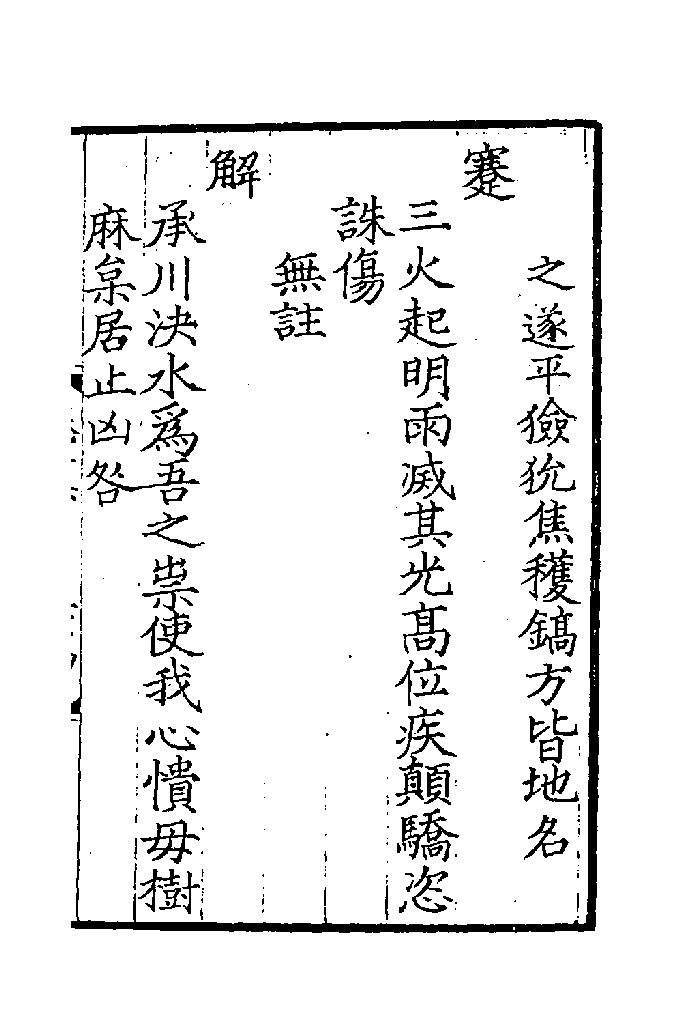 之遂平獫狁焦穫鎬方皆地名
蹇
三火起明雨滅其光髙位疾顛驕恣
誅傷
無註
解
承川決水爲吾之祟使我心憒毋樹
麻枲居止凶咎